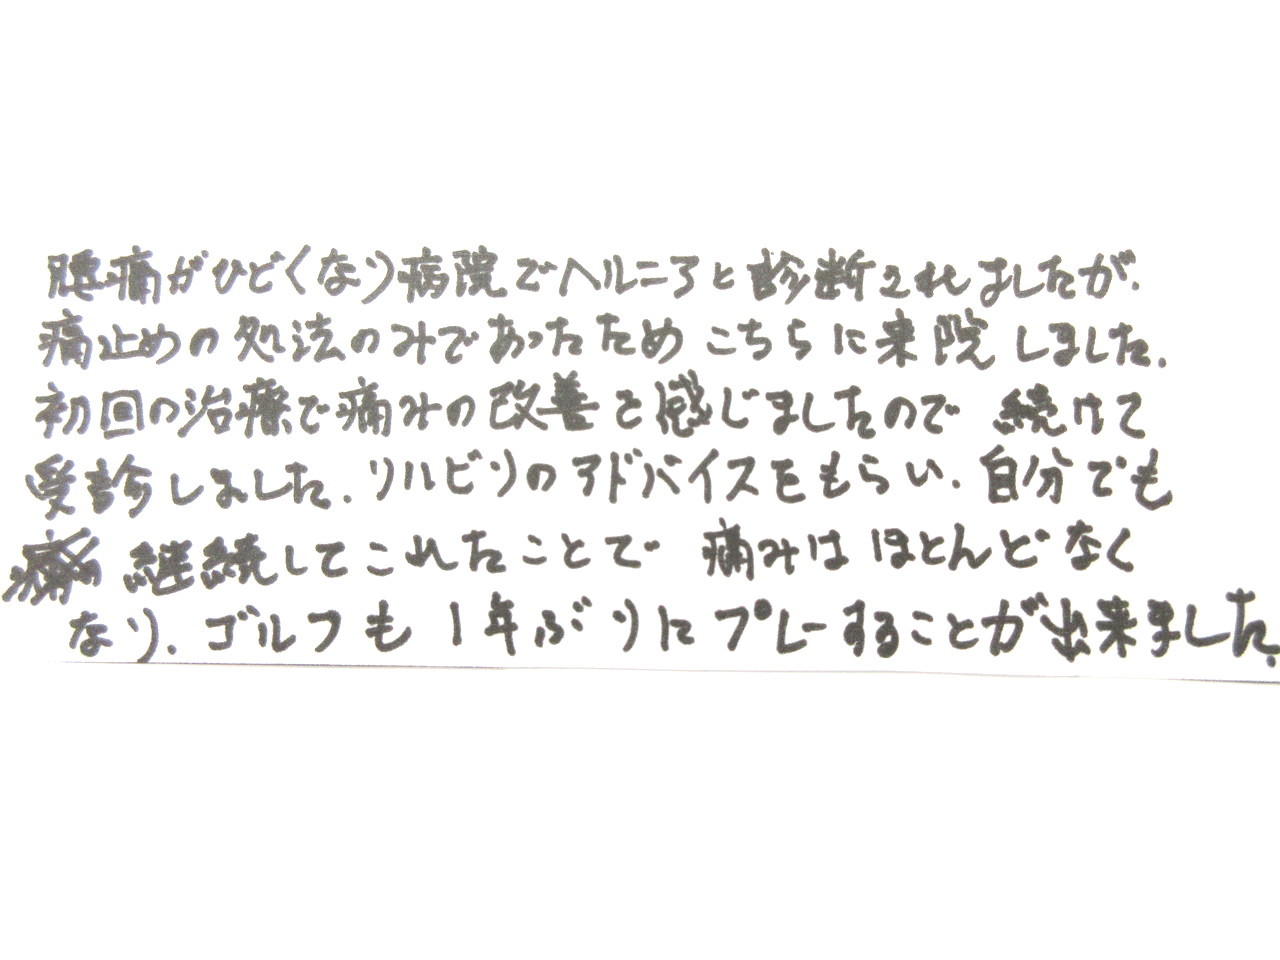 腰痛がひどくなり病院でヘルニアと診断されましたが、
痛止めの処法のみであったためこちらに来院しました。
初回の治療で痛みの改善を感じましたので 続けて
受診しました。リハビリのアドバイスをもらい、自分でも
継続してこれたことで 痛みはほとんどなく
なり、ゴルフも1年ぶりにプレーすることが出来ました。